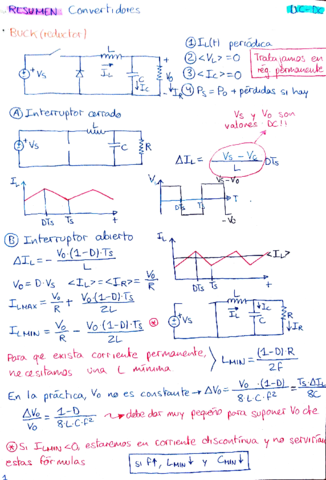 RESUMEN Convertidores DC-DC
· BUCK (reductor)
① IL(t) periódica
② <VL> = 0
③ <Ic> = 0
④ Ps = Po + pérdidas si hay
Trabajamos en
rég permanente
L
+ Vs
IL
C
Ic
+
Vo
-
R
IR
Ⓐ Interruptor cerrado
Vs y Vo son
valores DC!!
+ Vs
C
R
ΔIL = (Vs - Vo)/L DTs
IL
DTs Ts t
VL
Vs-Vo
DTs Ts T
-Vo
Ⓑ Interruptor abierto
ΔIL = - Vo·(1-D)·Ts/L
Vo = D·Vs <IL> = <IR> = Vo/R
ILMAX = Vo/R + Vo(1-D)·Ts/2L
ILMIN = Vo/R - Vo(1-D)·Ts/2L ⊛
IL
<IL>
DTs Ts t
L
+ Vs
IL
Ic
C
R
IR
Para que exista corriente permanente,
necesitamos una L mínima
LMIN = (1-D)·R/2f
En la práctica, Vo no es constante → ΔVo = Vo·(1-D)/8·L·C·f² = Ts·ΔIL/8C
ΔVo/Vo = 1-D/8·L·C·f² → debe dar muy pequeño para suponer Vo cte
⊛ Si ILMIN<0, estaremos en corriente discontínua y no servirían
estas fórmulas
si f↑, LMIN↓ y CMIN↓
1